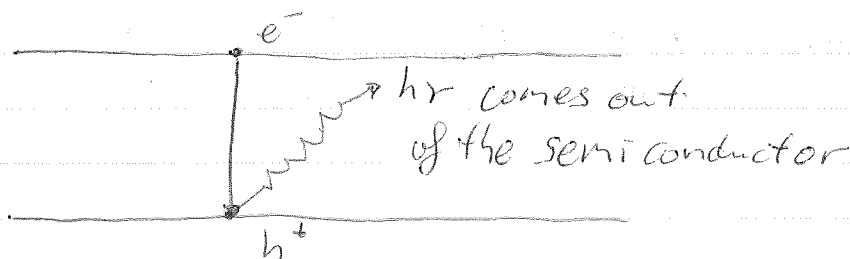 e⁻
hν comes out
of the semiconductor
h⁺